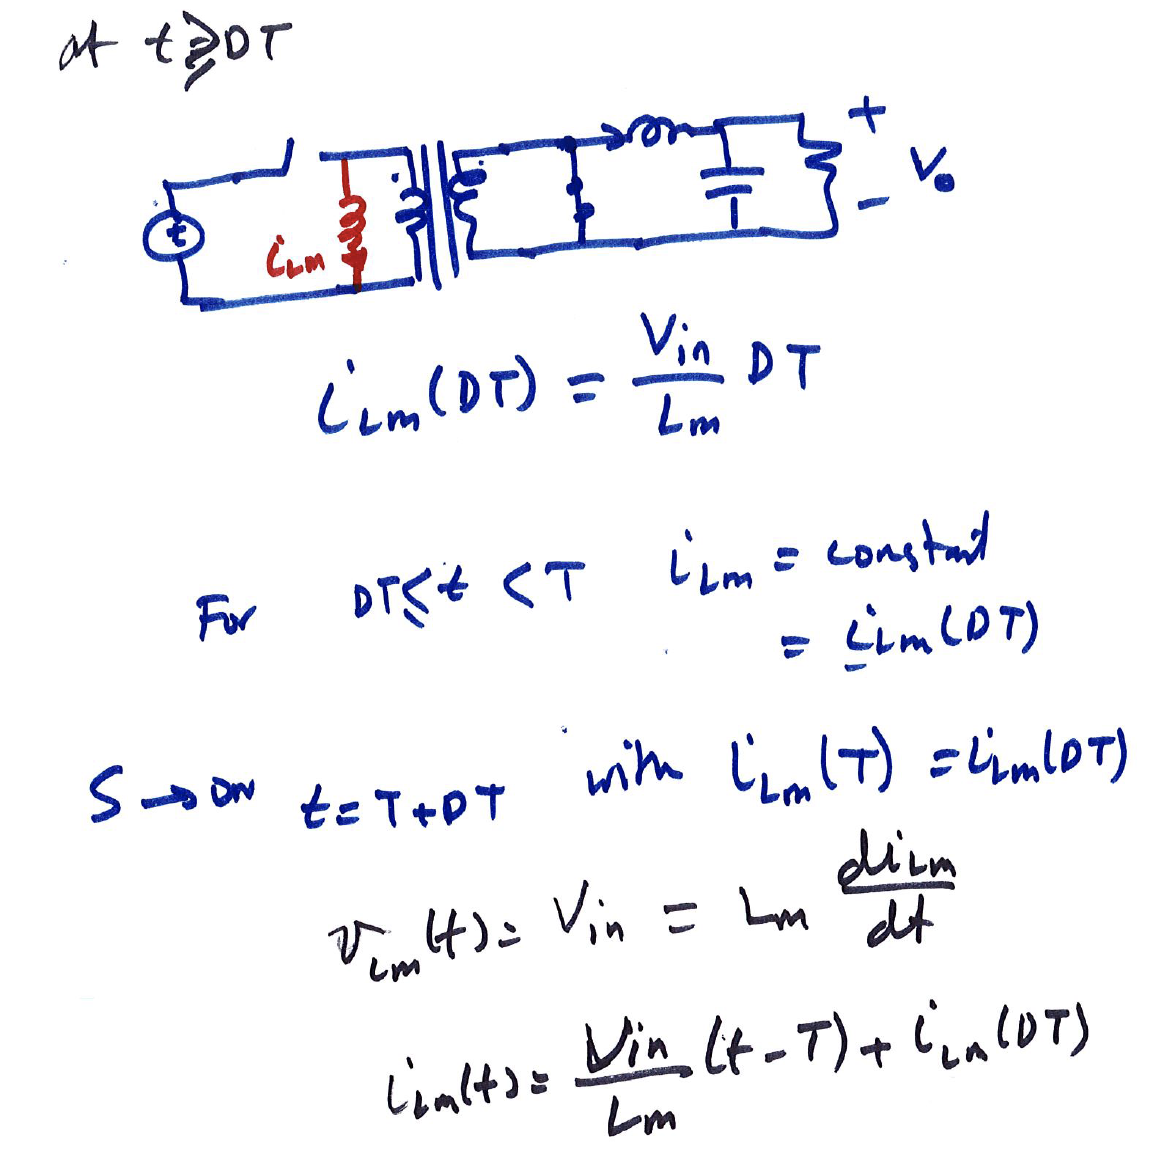 at t ≥ DT
+
t
i_Lm
V_o
-
i_Lm(DT) = V_in/L_m DT
For DT ≤ t < T i_Lm = constant
= i_Lm(DT)
S → ON t = T + DT with i_Lm(T) = i_Lm(DT)
v_Lm(t) = V_in = L_m di_Lm/dt
i_Lm(t) = V_in/L_m (t - T) + i_Lm(DT)